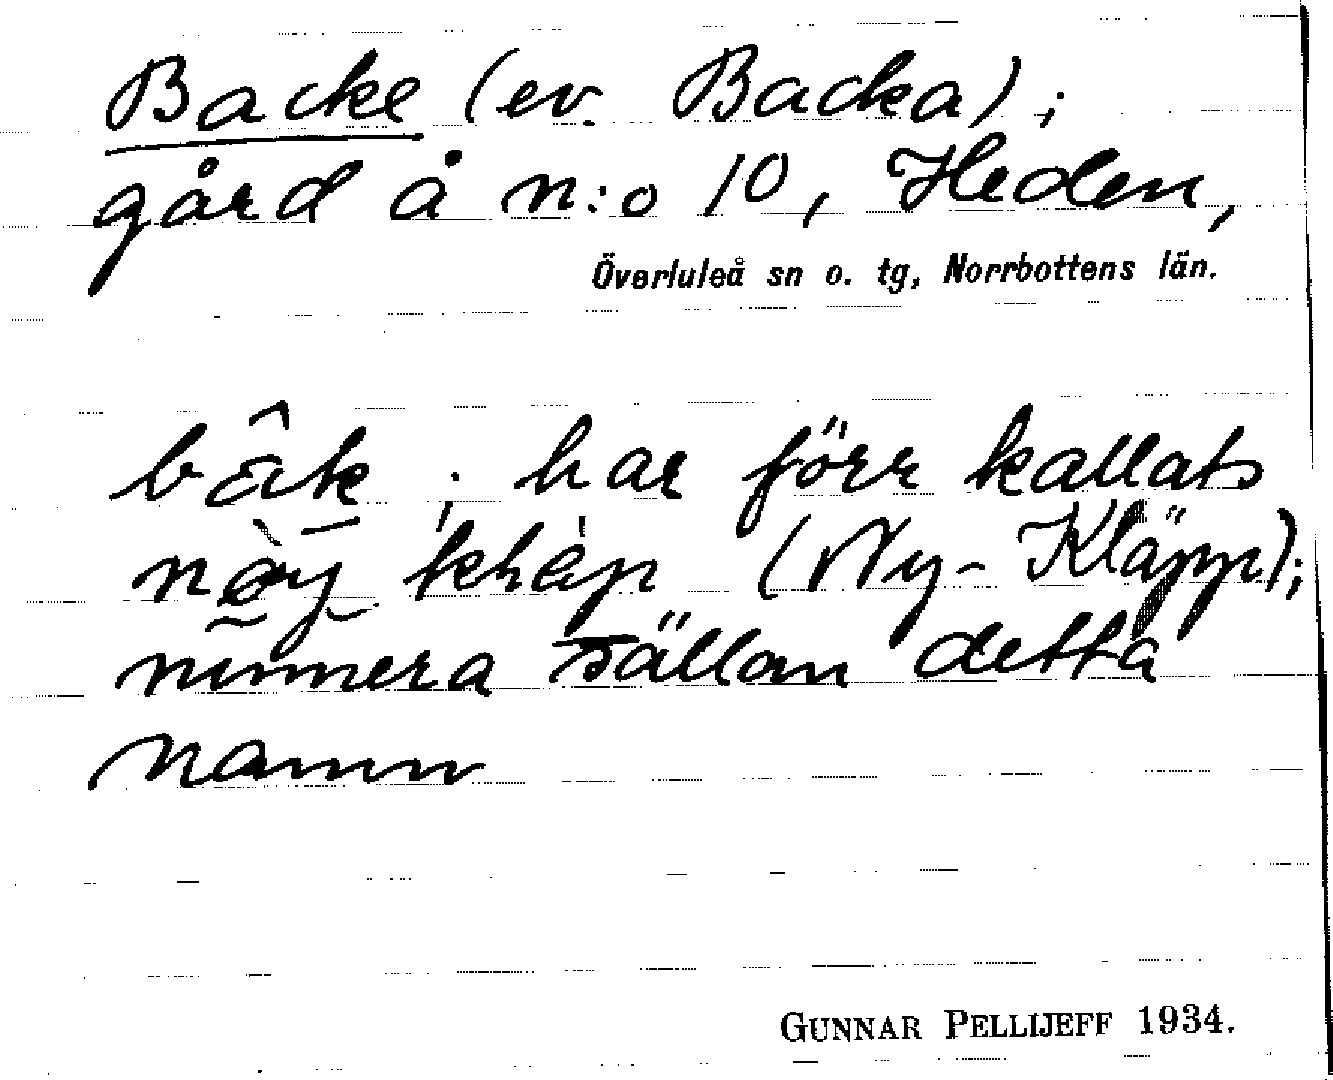 Backe (ev. Backa);
gård å n:o 10, Heden,
Överluleå sn o. tg, Norrbottens län.
bâk; har förr kallats
(Ny-Kläpp);
numera sällan detta
namn
GUNNAR PELLIJEFF 1934.